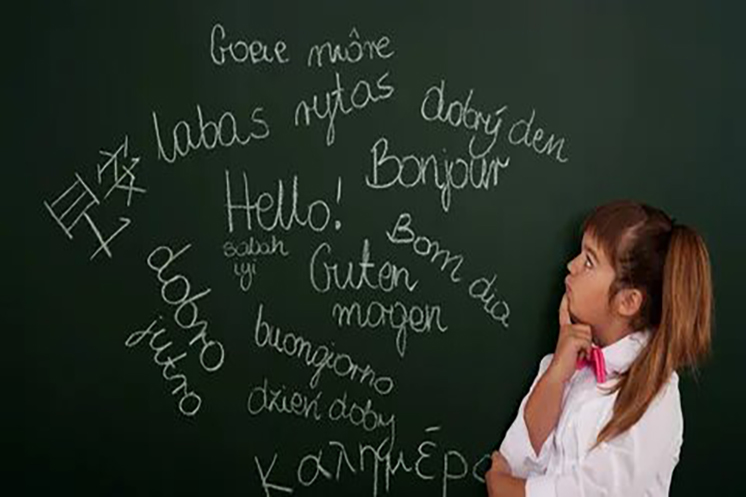 Goeie môre
labas rytas
dobrý den
Bonjour
Hello!
sabah
iyi
Bom dia
Guten
mogen
dobro
jutro
buongiorno
dzień doby
καλημέρα